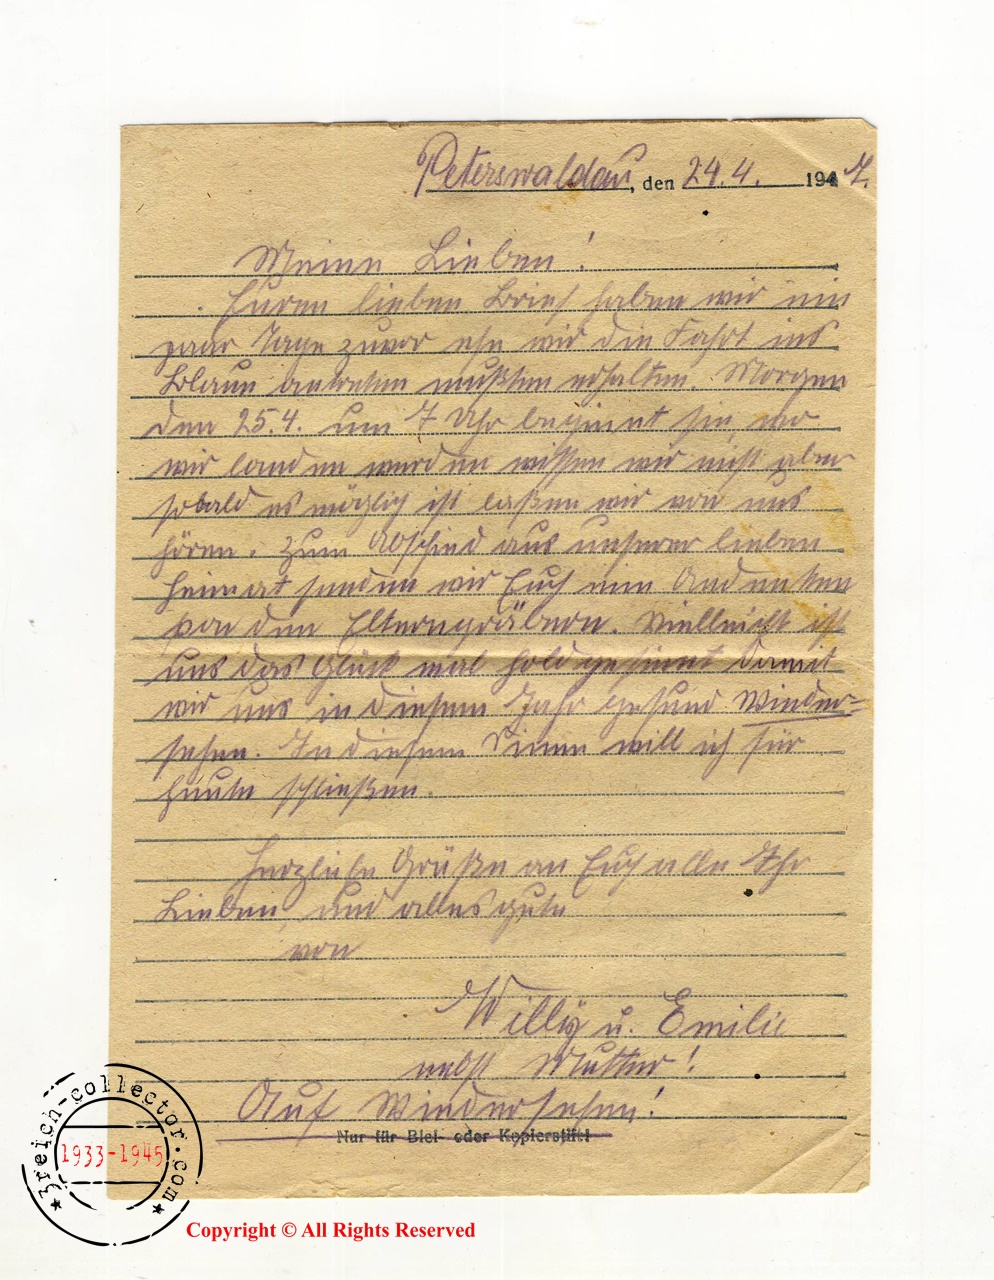 Peterswaldau, den 24.4. 1947.
Meine Lieben!
Euren lieben Brief haben wir ein
paar Tage zuvor ehe wir die Fahrt ins
Blaue antreten mußten erhalten. Morgen
den 25.4. um 7 Uhr beginnt sie, wo
wir landen werden wissen wir nicht aber
sobald es möglich ist laßen wir von uns
hören. Zum Abschied aus unserer lieben
Heimat senden wir Euch ein Andenken
von den Elterngräbern. Vielleicht ist
uns das Glück mal hold gesinnt damit
wir uns in diesem Jahr gesund Wieder=
sehen. In diesem Sinne will ich für
heute schließen.
Herzliche Grüße an Euch alle Ihr
Lieben und alles gute
von
Willy u. Emilie
nebst Mutter!
Auf Wiedersehen!
Nur für Blei- oder Kopierstift!
3reich-collector.com
1933-1945
Copyright © All Rights Reserved